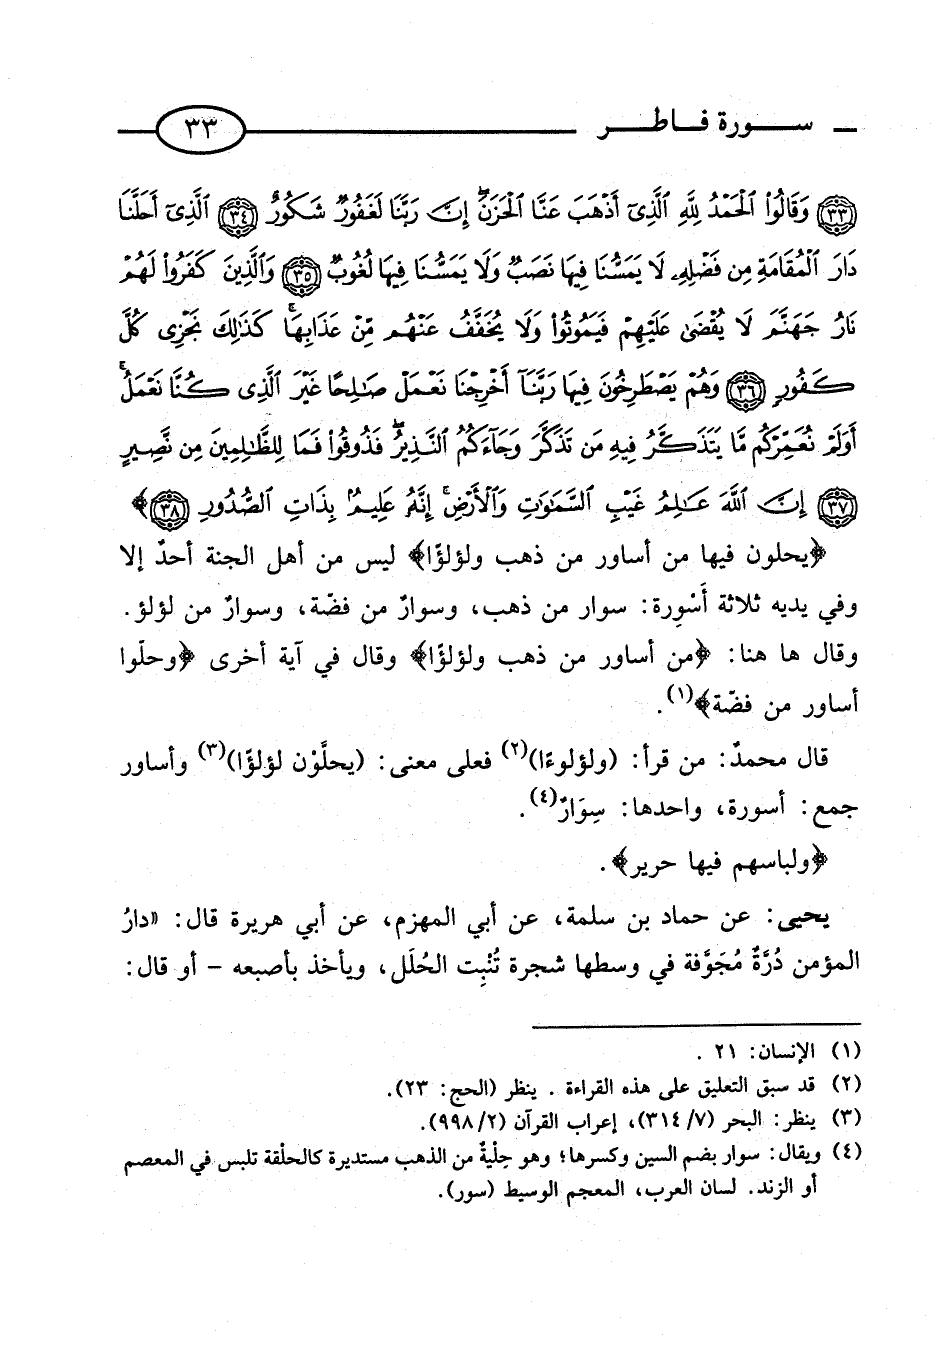 سورة فاطر ٣٣
﴿٣٣﴾ وَقَالُوا۟ ٱلْحَمْدُ لِلَّهِ ٱلَّذِىٓ أَذْهَبَ عَنَّا ٱلْحَزَنَ ۖ إِنَّ رَبَّنَا لَغَفُورٌ شَكُورٌ ﴿٣٤﴾ ٱلَّذِىٓ أَحَلَّنَا
دَارَ ٱلْمُقَامَةِ مِن فَضْلِهِۦ لَا يَمَسُّنَا فِيهَا نَصَبٌ وَلَا يَمَسُّنَا فِيهَا لُغُوبٌ ﴿٣٥﴾ وَٱلَّذِينَ كَفَرُوا۟ لَهُمْ
نَارُ جَهَنَّمَ لَا يُقْضَىٰ عَلَيْهِمْ فَيَمُوتُوا۟ وَلَا يُخَفَّفُ عَنْهُم مِّنْ عَذَابِهَا ۚ كَذَٰلِكَ نَجْزِى كُلَّ
كَفُورٍ ﴿٣٦﴾ وَهُمْ يَصْطَرِخُونَ فِيهَا رَبَّنَآ أَخْرِجْنَا نَعْمَلْ صَٰلِحًا غَيْرَ ٱلَّذِى كُنَّا نَعْمَلُ ۚ
أَوَلَمْ نُعَمِّرْكُم مَّا يَتَذَكَّرُ فِيهِ مَن تَذَكَّرَ وَجَآءَكُمُ ٱلنَّذِيرُ ۖ فَذُوقُوا۟ فَمَا لِلظَّٰلِمِينَ مِن نَّصِيرٍ
﴿٣٧﴾ إِنَّ ٱللَّهَ عَٰلِمُ غَيْبِ ٱلسَّمَٰوَٰتِ وَٱلْأَرْضِ ۚ إِنَّهُۥ عَلِيمٌۢ بِذَاتِ ٱلصُّدُورِ ﴿٣٨﴾﴾
﴿يحلون فيها من أساور من ذهب ولؤلؤًا﴾ ليس من أهل الجنة أحدٌ إلا
وفي يديه ثلاثة أَسْوِرة: سوار من ذهب، وسوارٌ من فضّة، وسوارٌ من لؤلؤ.
وقال ها هنا: ﴿من أساور من ذهب ولؤلؤًا﴾ وقال في آية أخرى ﴿وحلّوا
أساور من فضّة﴾(١).
قال محمدٌ: من قرأ: (ولؤلوءًا)(٢) فعلى معنى: (يحلَّوْن لؤلؤًا)(٣) وأساور
جمع: أسورة، واحدها: سِوَارٌ(٤).
﴿ولباسهم فيها حرير﴾.
يحيى: عن حماد بن سلمة، عن أبي المهزم، عن أبي هريرة قال: «دارُ
المؤمن دُرَّةٌ مُجَوَّفة في وسطها شجرة تُنْبِت الحُلَل، ويأخذ بأصبعه - أو قال:
(١) الإنسان: ٢١ .
(٢) قد سبق التعليق على هذه القراءة . ينظر (الحج: ٢٣).
(٣) ينظر: البحر (٣١٤/٧)، إعراب القرآن (٩٩٨/٢).
(٤) ويقال: سوار بضم السين وكسرها؛ وهو حِلْيةٌ من الذهب مستديرة كالحلْقة تلبس في المعصم
أو الزند. لسان العرب، المعجم الوسيط (سور).